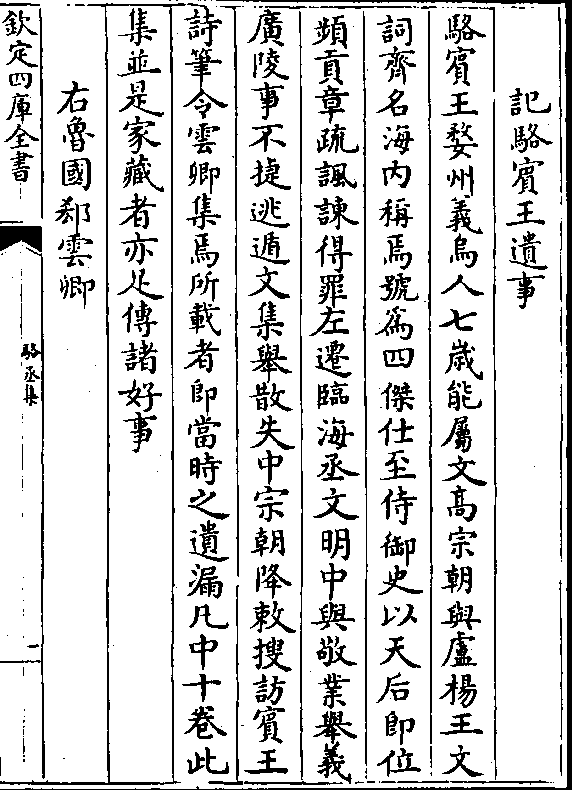 記駱賓王遺事
駱賓王婺州義烏人七歲能屬文高宗朝與盧楊王文
詞齊名海内稱焉號爲四傑仕至侍御史以天后即位
頻貢章疏諷諫得罪左遷臨海丞文明中與敬業舉義
廣陵事不捷逃遁文集舉散失中宗朝降敕搜訪賓王
詩筆令雲卿集焉所載者即當時之遺漏凡中十卷此
集並是家藏者亦足傳諸好事
右魯國郄雲卿
欽定四庫全書
駱丞集
一